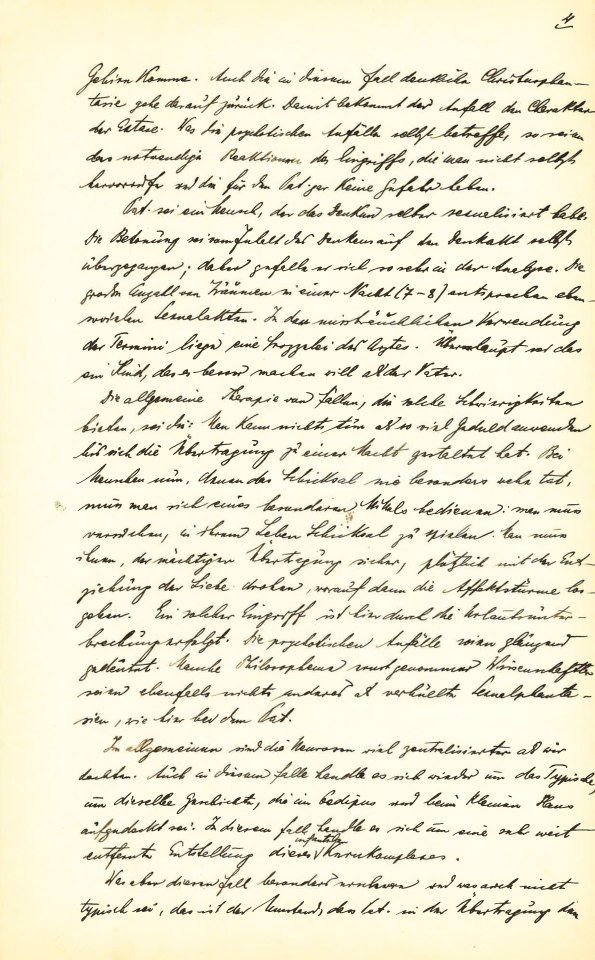 4
Gehirn komme. Auch die in diesem Fall deutliche Christusphan-
tasie gehe darauf zurück. Damit bekommt der Anfall den Charakter
der Extase. Was die psychotischen Anfälle selbst betreffe, so seien
das notwendige Reaktionen des Eingriffs, die man nicht selbst
hervorrufe und die für den Pat. gar keine Gefahr haben.
Pat. sei ein Mensch, der das Denken selber sexualisiert habe.
Die Betonung sei vom Inhalt des Denkens auf den Denkakt selbst
übergegangen; daher gefalle er sich so sehr in der Analyse. Die
große Anzahl von Träumen in einer Nacht (7-8) entsprechen eben-
sovielen Sexualakten. In der missbräuchlichen Verwendung
der Termini liege eine des Arztes. Überhaupt sei das
ein Kind, das es besser machen will als der Vater.
Die allgemeine Therapie von Fällen, die solche Schwierigkeiten
bieten, sei die: Man kann nichts tun als so viel Geduld anwenden
bis sich die Übertragung zu einer Macht gestaltet hat. Bei
Menschen nun, denen das Schicksal nie besonders wehe tat,
muss man sich eines besonderen Mittels bedienen: man muss
versuchen, in ihrem Leben Schicksal zu spielen. Man muss
ihnen, der mächtigen Übertragung sicher, plötzlich mit der Ent-
ziehung der Liebe drohen, worauf dann die Affektstürme los-
gehen. Ein solcher Eingriff ist hier durch die Urlaubsunter-
brechung erfolgt. Die psychotischen Anfälle seien glänzend
gedeutet. Manche Philosopheme Wissenschaften
seien ebenfalls nichts anderes als verhüllte Sexualphanta-
sien, wie hier bei dem Pat.
Im allgemeinen sind die Neurosen viel zentralisierter als wir
dachten. Auch in diesem Falle handle es sich wieder um das Typische,
um dieselbe Geschichte, die im Oedipus und beim kleinen Hans
aufgedeckt sei. In diesem Fall handle es sich um eine sehr weit
entfernte Entstellung dieses infantilen Kernkomplexes.
Was aber diesen Fall besonders und was auch nicht
typisch sei, das ist der Umstand, dass Pat. in der Übertragung den